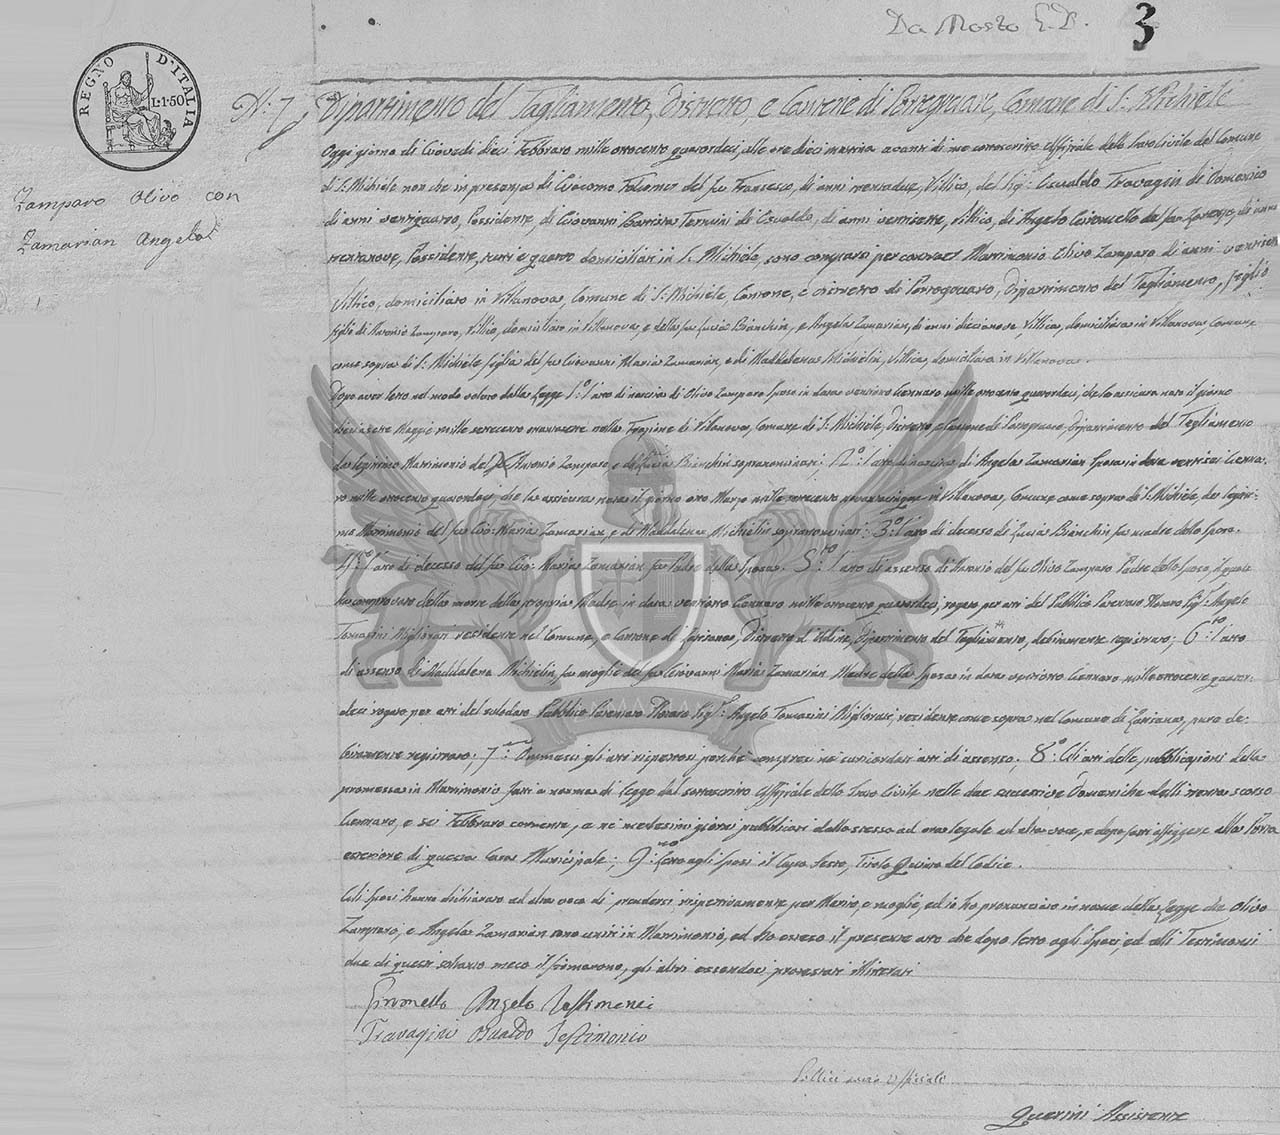 Da Mosto E. D.
3
REGNO D'ITALIA
L. 1.50
N.° 7 Dipartimento del Tagliamento, Distretto, e Cantone di Portogruaro, Comune di S. Michiele
Zamparo Olivo con
Zamarian Angela
Oggi giorno di Giovedì dieci Febbraro mille ottocento quattordeci, alle ore dieci mattina avanti di me sottoscritto Uffiziale dello Stato Civile del Comune
di S. Michiele non che in presenza di Giacomo del fu Francesco, di anni trentadue, Villico, del Sig.r Osvaldo Travagin di Domenico
di anni ventiquattro, Possidente, di Giovanni Battista di Osvaldo, di anni ventisette, Villico, di Angelo del fu di anni
trentanove, Possidente, tutti e quattro domiciliati in S. Michiele, sono comparsi per contraer Matrimonio Olivo Zamparo di anni ventisette
Villico, domiciliato in Villanova, Comune di S. Michiele Cantone, e Distretto di Portogruaro, Dipartimento del Tagliamento, figlio
figlio di Antonio Zamparo, Villico, domiciliato in Villanova, e della fu Lucia Bianchin, e Angela Zamarian, di anni diecinove, Villica, domiciliata in Villanova Comune
come sopra di S. Michiele figlia del fu Giovanni Maria Zamarian, e di Maddalena Michielin, Villica, domiciliata in Villanova.
Dopo aver letto nel modo voluto dalla Legge 1.° l'atto di nascita di Olivo Zamparo Sposo in data ventiotto Gennaro mille ottocento quattordeci, che lo assicura nato il giorno
diecisette Maggio mille settecento ottantasette nella Frazione di Villanova, Comune di S. Michiele, Distretto, e Cantone di Portogruaro, Dipartimento del Tagliamento
da legittimo Matrimonio del Antonio Zamparo e della Lucia Bianchin soprannominati; 2.° l'atto di nascita di Angela Zamarian Sposa in data ventisei Genna-
ro mille ottocento quattordeci, che la assicura nata il giorno otto Marzo mille settecento novantacinque in Villanova, Comune come sopra di S. Michiele, da legitti-
mo Matrimonio del fu Gio: Maria Zamarian, e di Maddalena Michielin soprannominati: 3.° l'atto di decesso di Lucia Bianchin fu madre dello Sposo.
4.° l'atto di decesso del fu Gio: Maria Zamarian fu Padre della Sposa. 5.° l'atto di assenso di Antonio del fu Olivo Zamparo Padre dello Sposo, il quale
ha comprovato della morte della propria Madre in data ventiotto Gennaro mille ottocento quattordeci, rogato per atti del Pubblico Notaro Sig.r Angelo
Tomasini Migliorati residente nel Comune, e Cantone di Distretto d'Udine, Dipartimento del Tagliamento, debitamente registrato; 6.° l'atto
di assenso di Maddalena Michielin, fu moglie del fu Giovanni Maria Zamarian Madre della Sposa in data ventiotto Gennaro mille ottocento quattor-
deci rogato per atti del sulodato Pubblico Notaro Sig.r Angelo Tomasini Migliorati, residente come sopra nel Comune di pure de-
bitamente registrato; 7.° Ommessi gli atti rispettosi perchè compresi ne surricordati atti di assenso; 8.° Gli atti delle pubblicazioni della
promessa in Matrimonio fatti a norma di Legge dal sottoscritto Uffiziale dello Stato Civile nelle due successive Domeniche delli trenta scorso
Gennaro, e sei Febbraro corrente, e ne medesimi giorni pubblicati dallo stesso ad ora legale ad alta voce, e dopo fatti affiggere alla Porta
esteriore di questa Casa Municipale; 9.° Letto agli Sposi il Capo Sesto, Titolo Quinto del Codice.
Gli Sposi hanno dichiarato ad alta voce di prendersi rispettivamente per Marito, e moglie, ed io ho pronunciato in nome della Legge che Olivo
Zamparo, e Angela Zamarian sono uniti in Matrimonio, ed ho esteso il presente atto che dopo letto agli Sposi, ed alli Testimonii
due di questi soltanto meco il firmarono, gli altri essendosi protestati illiterati
Angelo Testimonei
Travagini Osualdo Testimonio
Uffiziale
Querini Assistente